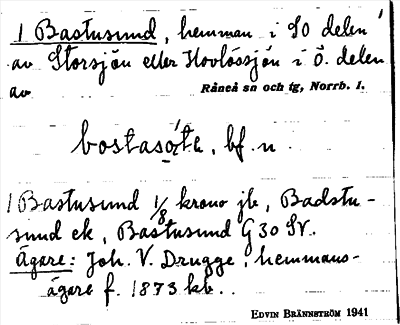 1 Bastusund, hemman i SO delen
av Storsjön eller Hovlössjön i Ö. delen
av Råneå sn och tg, Norrb. l.
bostasọ́te, bf. n
1 Bastusund 1/8 krono jb, Badstu-
sund ek, Bastusund G 30 SV.
Ägare: Joh. V. Drugge, hemmans-
ägare f. 1873 kb..
EDVIN BRÄNNSTRÖM 1941